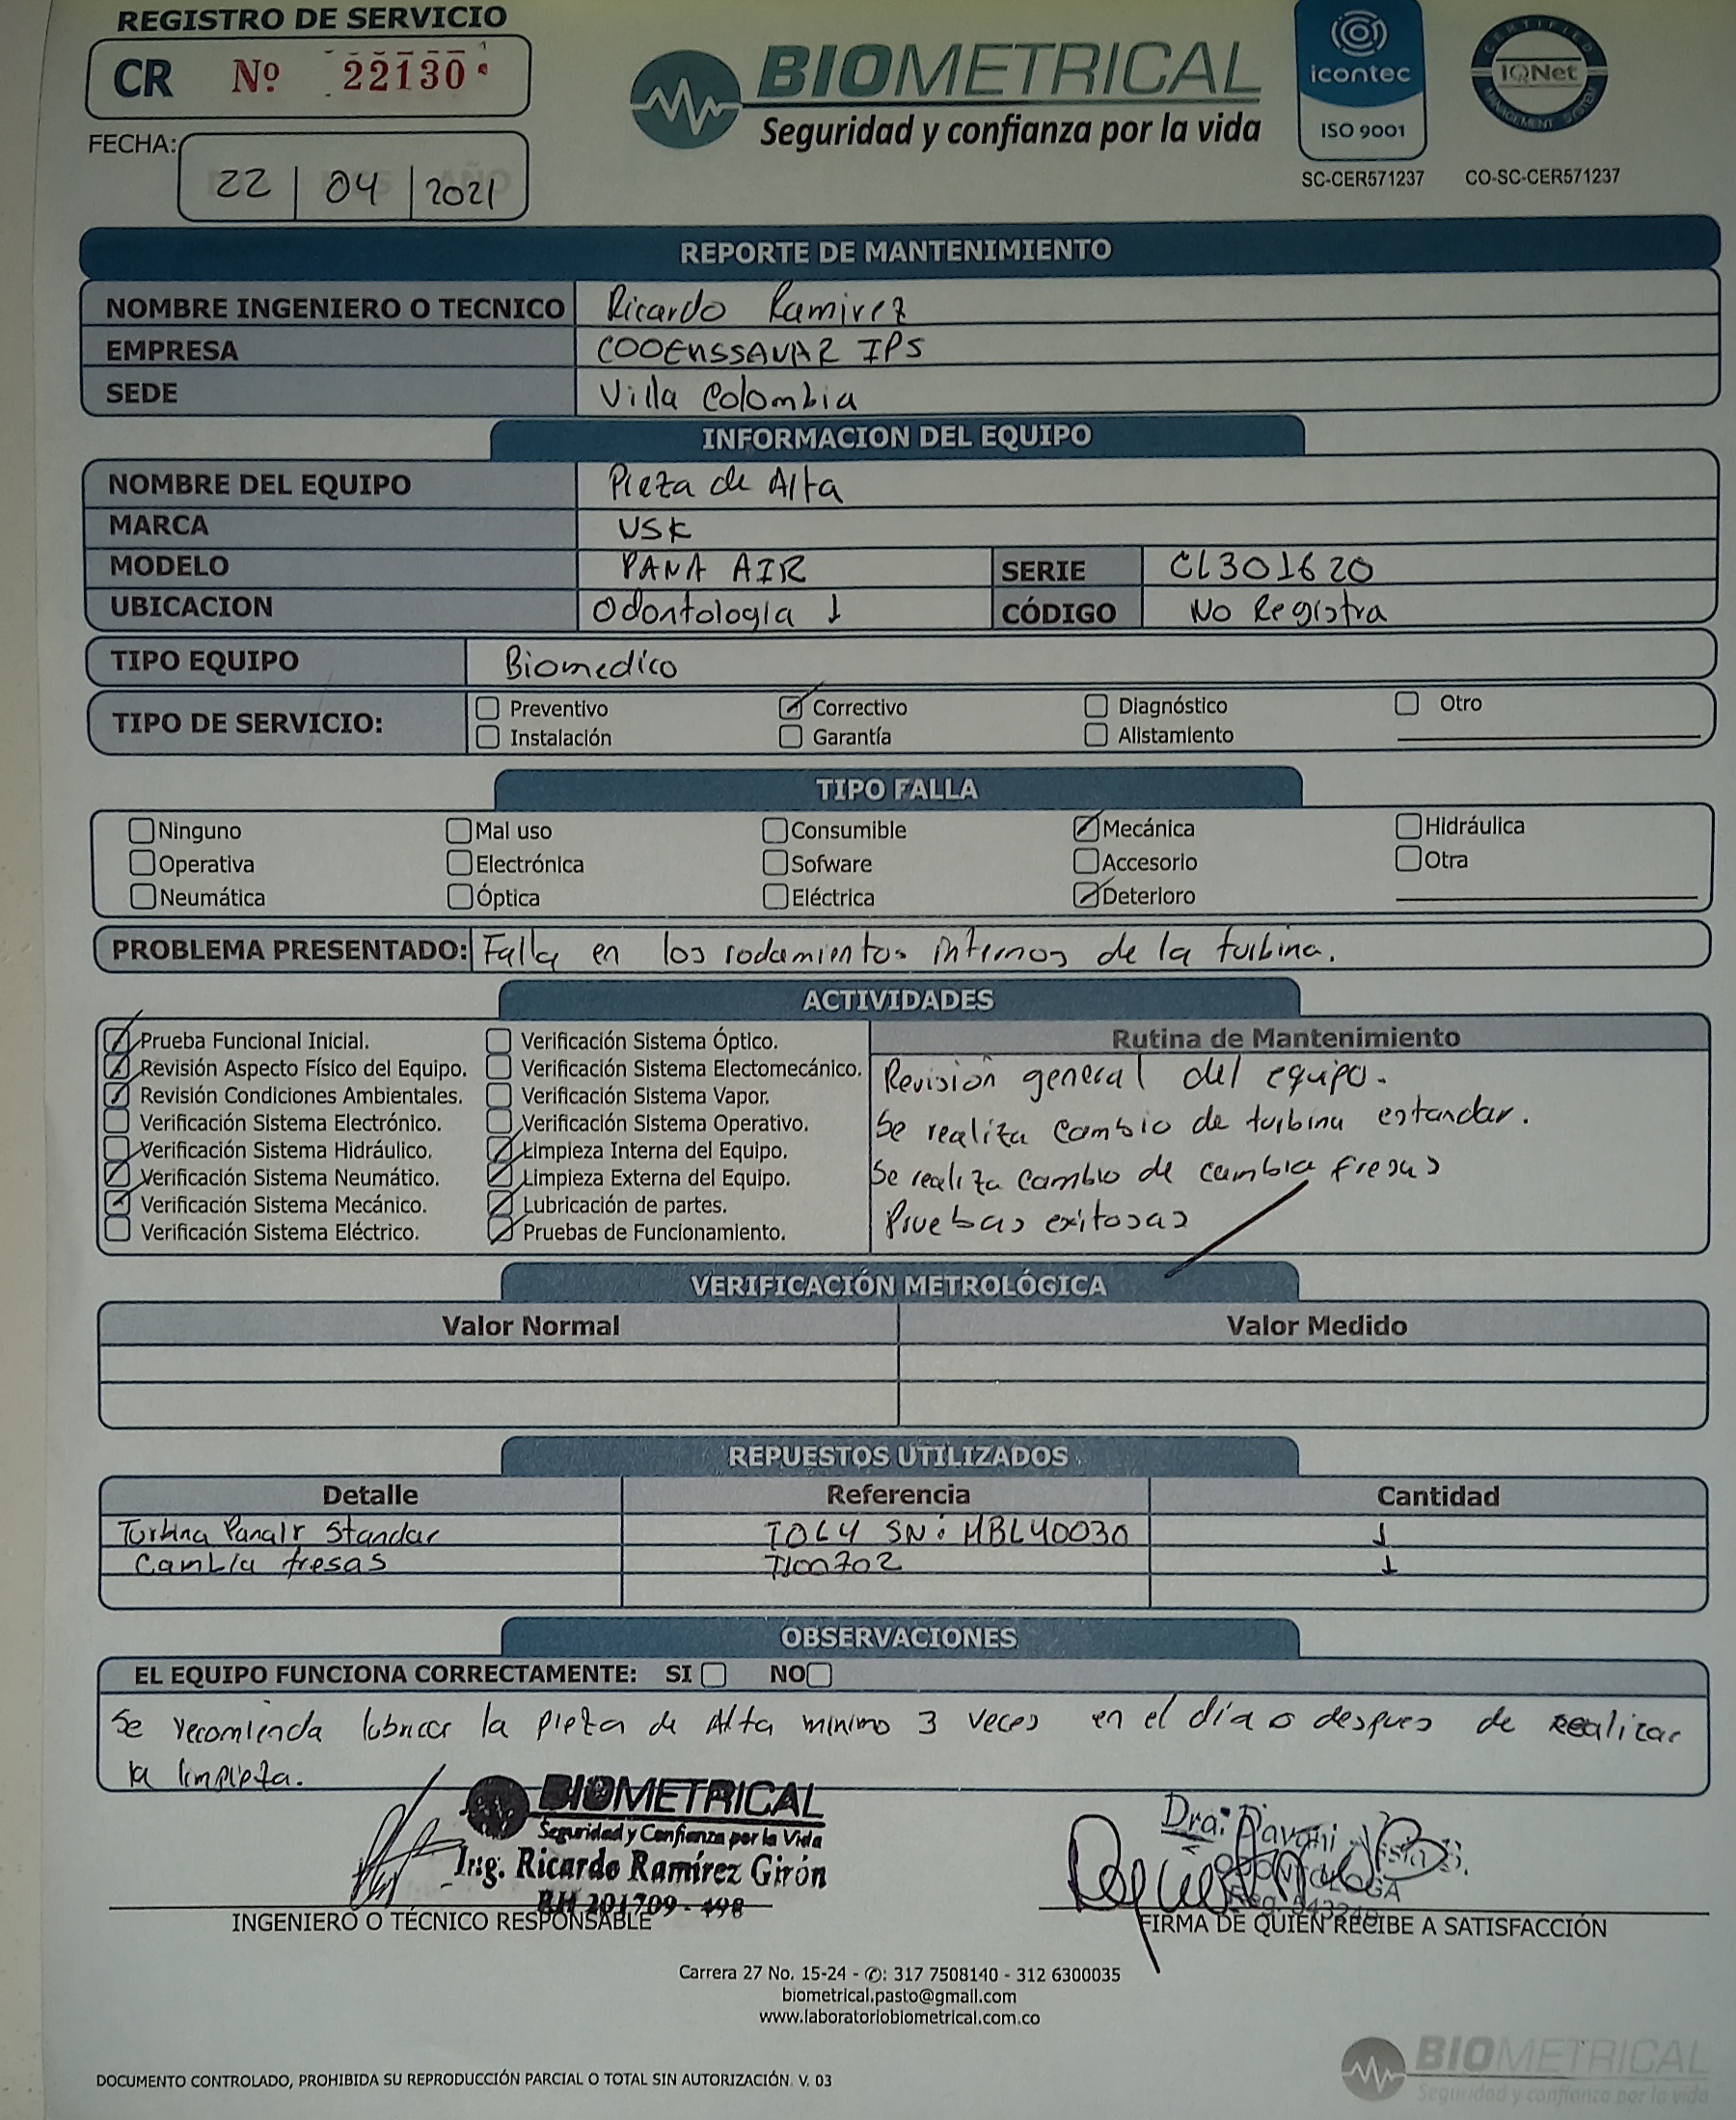 REGISTRO DE SERVICIO
CR Nº 22130
BIOMETRICAL
Seguridad y confianza por la vida
icontec
ISO 9001
SC-CER571237
CERTIFIED
IQNet
MANAGEMENT SYSTEM
CO-SC-CER571237
FECHA:
22 | 04 | 2021
REPORTE DE MANTENIMIENTO
NOMBRE INGENIERO O TECNICO Ricardo Ramirez
EMPRESA COOEMSSAVAR IPS
SEDE Villa Colombia
INFORMACION DEL EQUIPO
NOMBRE DEL EQUIPO Pieza de Alta
MARCA USK
MODELO PANA AIR SERIE CL301620
UBICACION Odontologia 1 CÓDIGO No Registra
TIPO EQUIPO Biomedico
TIPO DE SERVICIO: Preventivo Correctivo Diagnóstico Otro
Instalación Garantía Alistamiento
TIPO FALLA
Ninguno Mal uso Consumible Mecánica Hidráulica
Operativa Electrónica Sofware Accesorio Otra
Neumática Óptica Eléctrica Deterioro
PROBLEMA PRESENTADO: Falla en los rodamientos internos de la turbina.
ACTIVIDADES
Prueba Funcional Inicial.
Revisión Aspecto Físico del Equipo.
Revisión Condiciones Ambientales.
Verificación Sistema Electrónico.
Verificación Sistema Hidráulico.
Verificación Sistema Neumático.
Verificación Sistema Mecánico.
Verificación Sistema Eléctrico.
Verificación Sistema Óptico.
Verificación Sistema Electomecánico.
Verificación Sistema Vapor.
Verificación Sistema Operativo.
Limpieza Interna del Equipo.
Limpieza Externa del Equipo.
Lubricación de partes.
Pruebas de Funcionamiento.
Rutina de Mantenimiento
Revisión general del equipo.
Se realiza cambio de turbina estandar.
Se realiza cambio de cambia fresas
Pruebas exitosas
VERIFICACIÓN METROLÓGICA
Valor Normal Valor Medido
REPUESTOS UTILIZADOS
Detalle Referencia Cantidad
Turbina Panair Standar TOL4 SN: HBL40030 1
Cambia fresas 1
OBSERVACIONES
EL EQUIPO FUNCIONA CORRECTAMENTE: SI NO
Se recomienda lubricar la pieza de Alta minimo 3 veces en el día o despues de realizar
la limpieza.
BIOMETRICAL
Seguridad y Confianza por la Vida
Ing. Ricardo Ramírez Girón
RH 201709 - 498
INGENIERO O TÉCNICO RESPONSABLE
Dra:
ODONTOLOGA
FIRMA DE QUIEN RECIBE A SATISFACCIÓN
Carrera 27 No. 15-24 - ✆: 317 7508140 - 312 6300035
biometrical.pasto@gmail.com
www.laboratoriobiometrical.com.co
BIOMETRICAL
Seguridad y confianza por la vida
DOCUMENTO CONTROLADO, PROHIBIDA SU REPRODUCCIÓN PARCIAL O TOTAL SIN AUTORIZACIÓN. V. 03